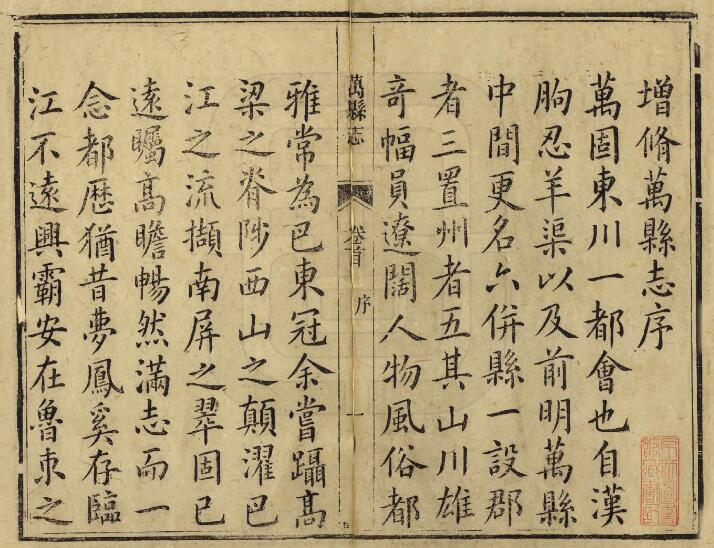 增脩萬縣志序
萬固東川一都會也自漢
朐忍羊渠以及前明萬縣
中間更名六併縣一設郡
者三置州者五其山川雄
竒幅員遼闊人物風俗都
萬縣志 卷首 序 一
雅常為巴東冠余嘗躡髙
梁之脊陟西山之顛濯巴
江之流擷南屏之翠固已
遠矚髙瞻暢然滿志而一
念都歴猶昔夢鳳奚存臨
江不遠興霸安在魯朿之